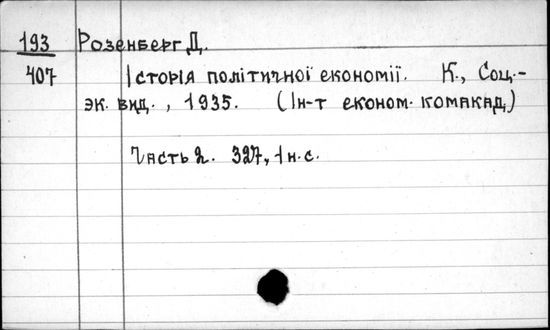 193 Розенберг Д.
407 Історія політичної економії. К., Соц.-
эк. вид., 1935. (Ін-т економ. комакад.)
Часть 2. 327, 1 н.с.